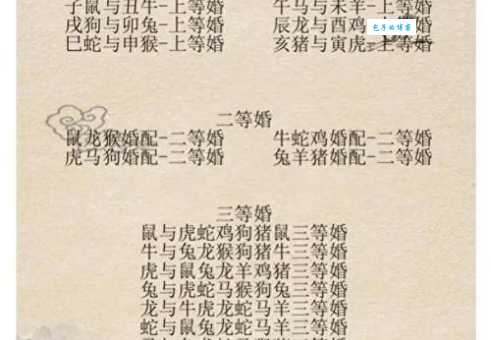 子鼠与丑牛-上等婚 午马与未羊-上等婚
戌狗与卯兔-上等婚 辰龙与酉鸡
巳蛇与申猴-上等婚 亥猪与寅虎-上等婚
二等婚
鼠龙猴婚配-二等婚 牛蛇鸡婚配-二等婚
虎马狗婚配-二等婚 兔羊猪婚配-二等婚
三等婚
鼠与虎蛇鸡狗猪鼠三等婚
牛与兔龙猴狗猪牛三等婚
虎与鼠兔龙羊鸡猪三等婚
兔与虎蛇马猴狗兔三等婚
龙与牛虎龙蛇马羊三等婚
蛇与鼠兔龙蛇马羊三等婚